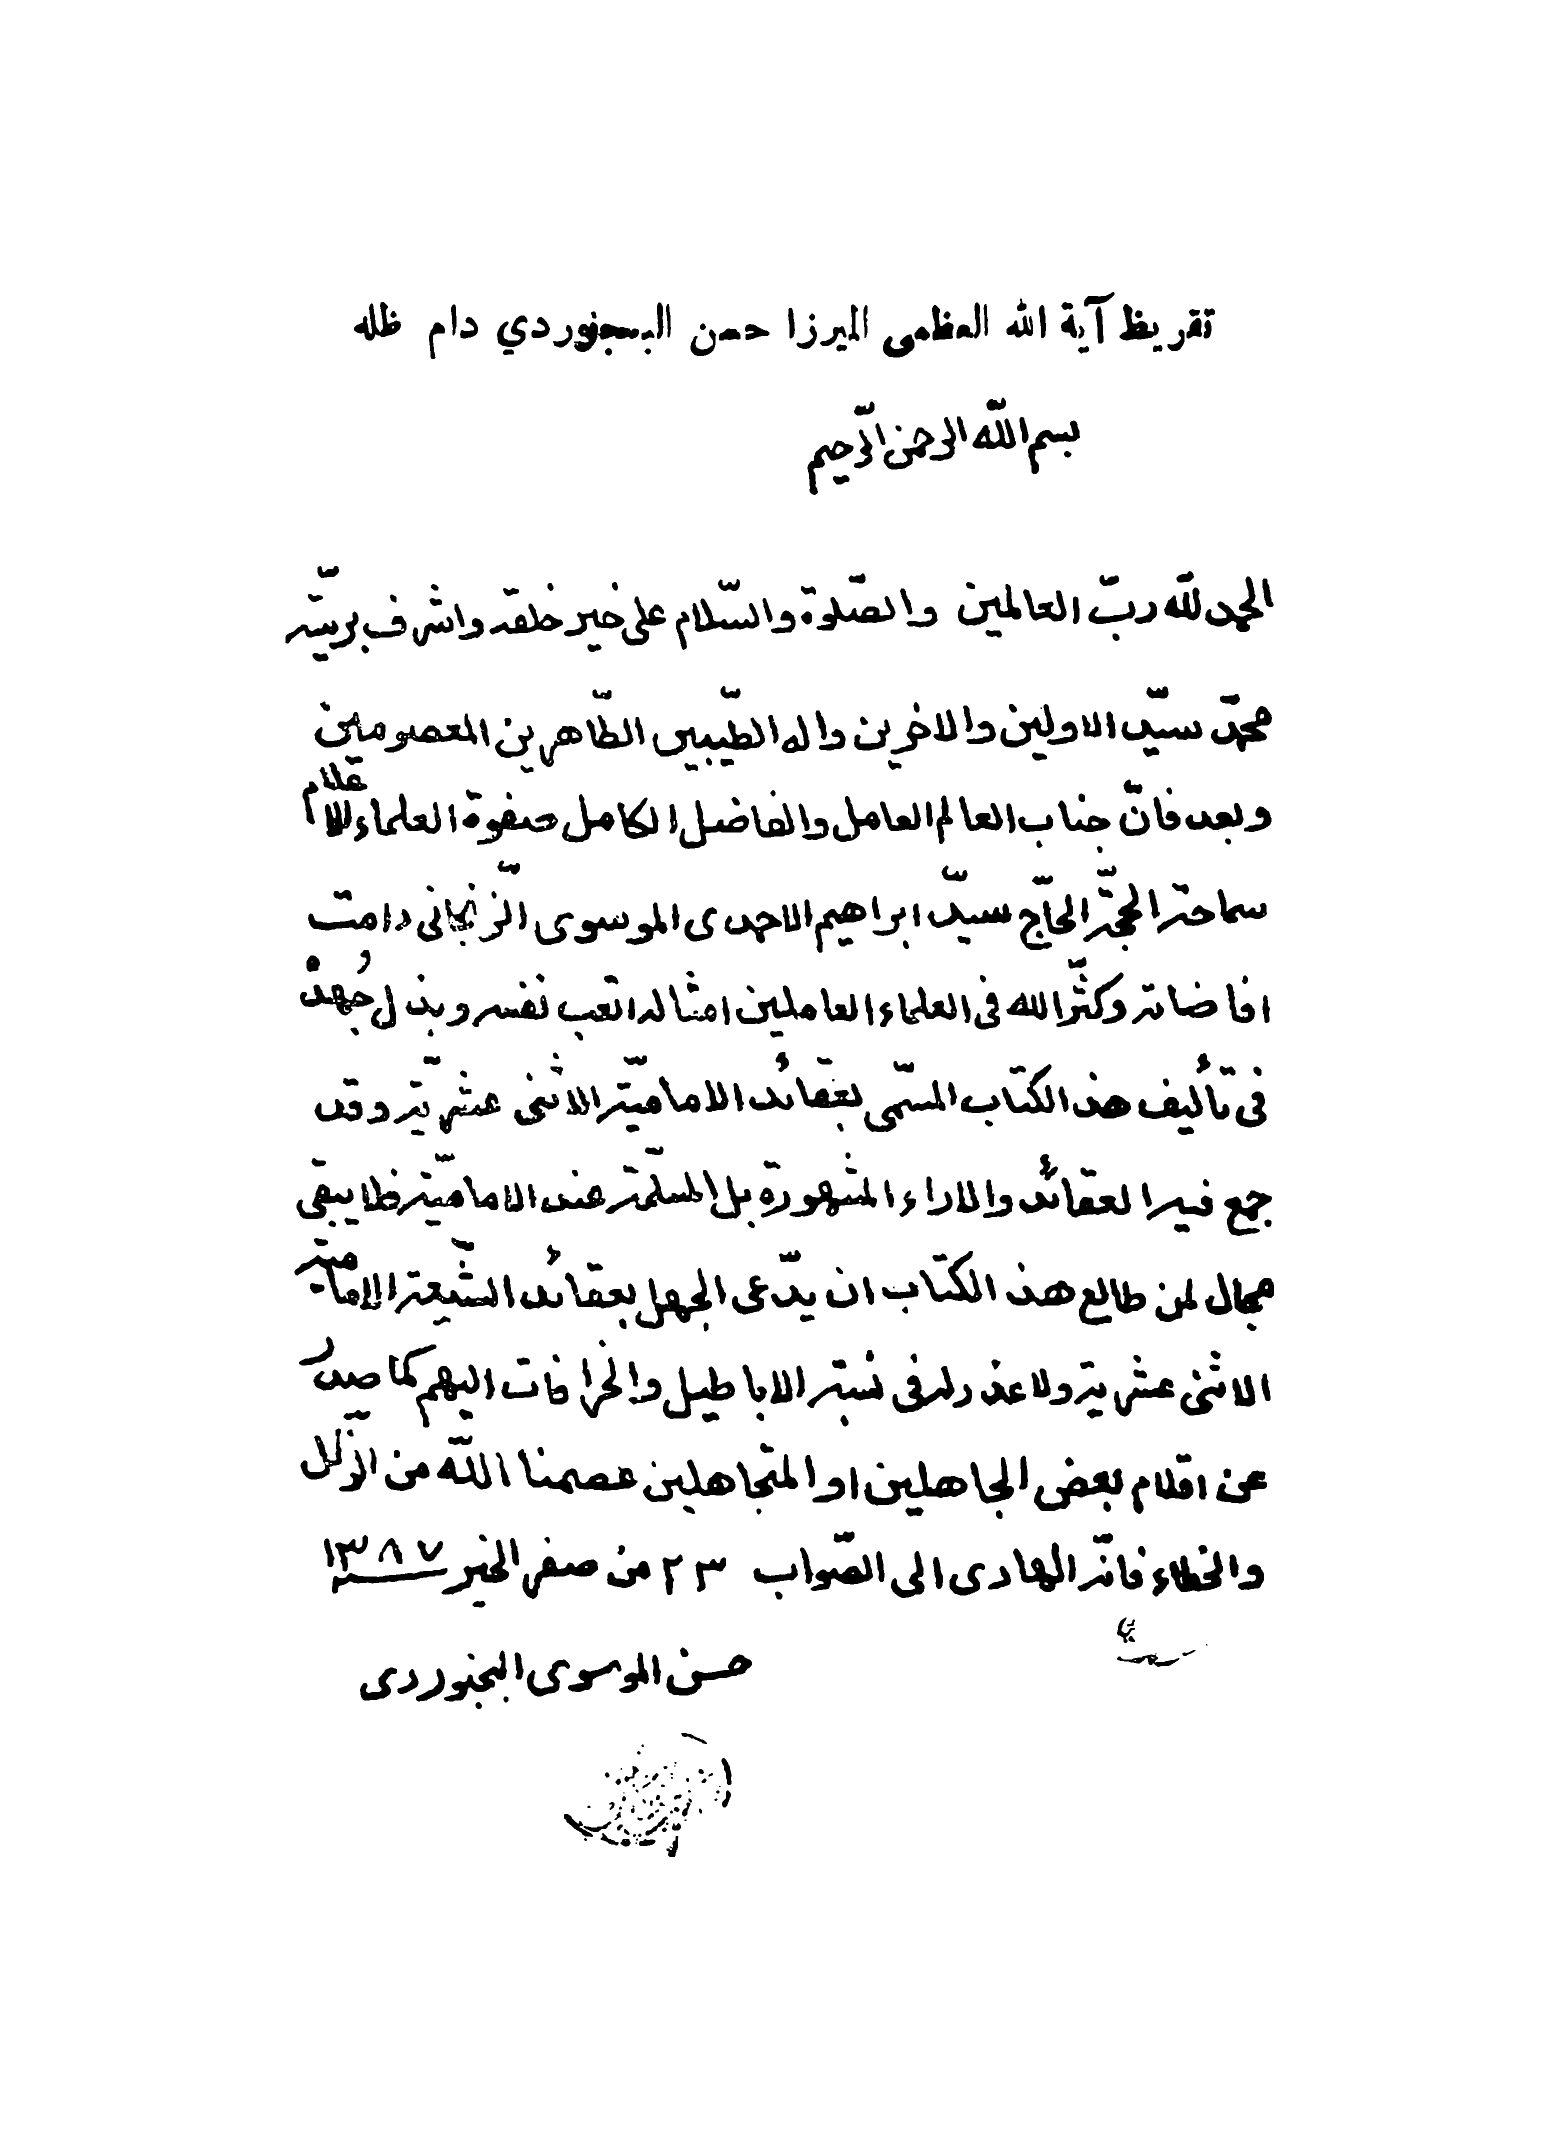 تقريظ آية الله العظمى الميرزا حسن البجنوردي دام ظله
بسم الله الرحمن الرّحيم
الحمد للّه ربّ العالمين والصّلوة والسّلام على خير خلقه واشرف بريّته
محمّد سيّد الاولين والاخرين واله الطّيبين الطّاهرين المعصومين
وبعد فانّ جناب العالم العامل والفاضل الكامل صفوة العلماء الاعلام
سماحة الحجّة الحاّج سيّد ابراهيم الاحمدى الموسوى الزّنجانى دامت
افاضاته وكثّر الله فى العلماء العاملين امثاله اتعب نفسه وبذل جُهدْه
فى تأليف هذ الكتاب المسّمى بعقائد الاماميّة الاثنى عشريّة وقد
جمع فيه العقائد والاراء المشهورة بل المسلّمة عند الاماميّة فلا يبقى
مجال لمن طالع هذ الكتاب ان يدّعى الجهل بعقائد الشّيعة الامامية
الاثنى عشرية ولا عذر له فى نسبة الاباطيل والخرافات اليهم كما صدر
عن اقلام بعض الجاهلين او المتجاهلين عصمنا اللّه من الزّلل
والخطاء فانّه الهادى الى الصّواب ٢٣ من صفر الخير ١٣٨٧
حسن الموسوى البجنوردى